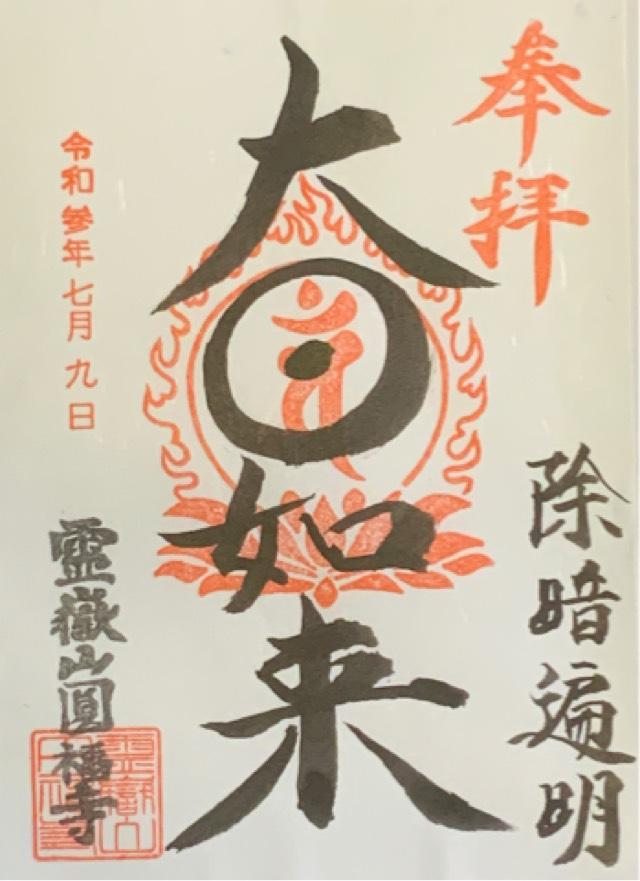 奉拝
除暗遍明
大日如来
令和参年七月九日
霊嶽山圓福寺